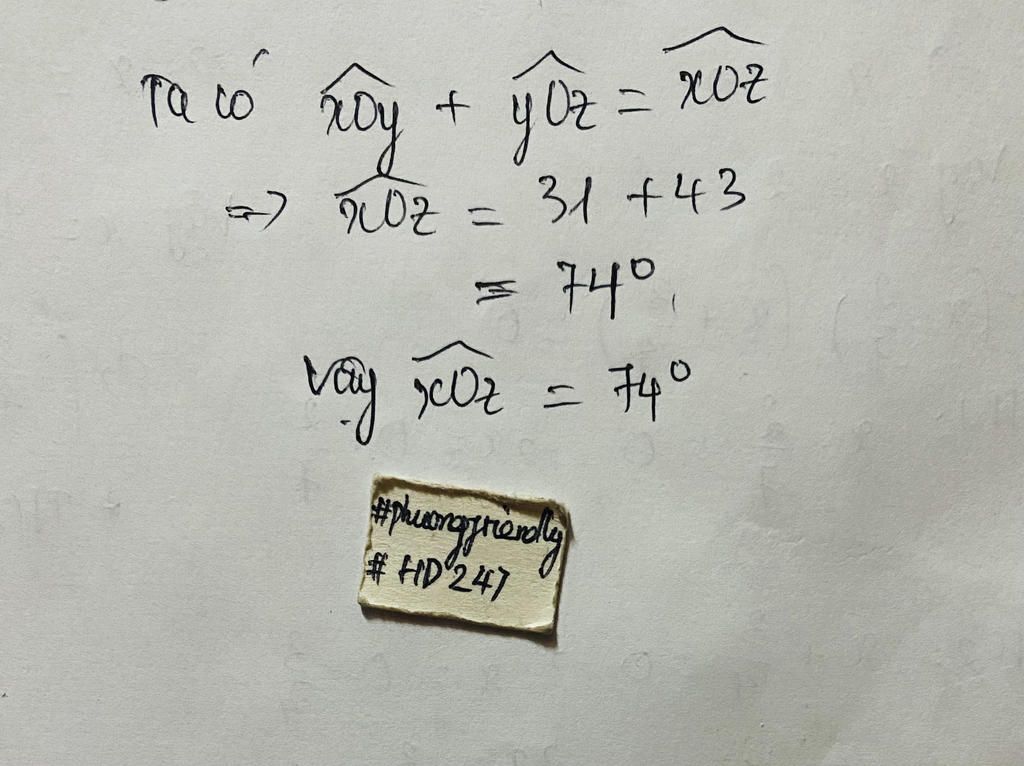 Ta có xÔy + yÔz = xÔz
=> xÔz = 31 + 43
= 74°.
Vậy xÔz = 74°
#phuongfriendly
# HD247